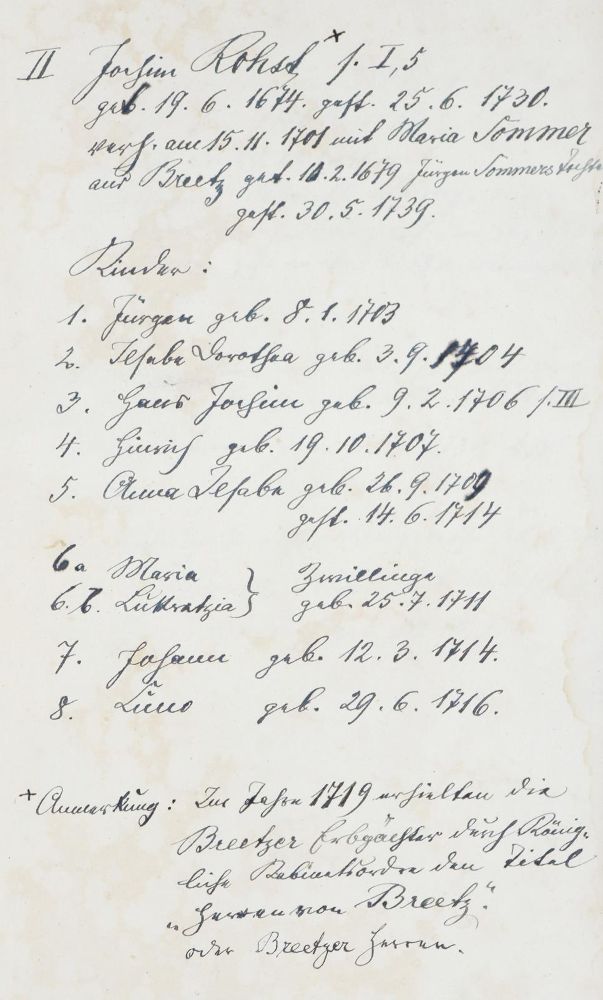 II Jochim Rohst x s. I,5
geb. 19. 6. 1674. gest. 25. 6. 1730.
verh. am 15. 11. 1701 mit Maria Sommer
aus Breetz get. 2. 1679 Jürgen Sommers Tochter
gest. 30. 5. 1739.
Kinder :
1. Jürgen geb. 8. 1. 1703
2. Ilsabe Dorothea geb. 3. 9. 1704
3. Hans Jochim geb. 9. 2. 1706 s. III
4. Hinrich geb. 19. 10. 1707.
5. Anna Ilsabe geb. 26. 9. 1709
gest. 14. 6. 1714
6a Maria } Zwillinge
6. b. Lukretzia } geb. 25. 7. 1711
7. Johann geb. 12. 3. 1714.
8. geb. 29. 6. 1716.
x Anmerkung : Im Jahre 1719 erhielten die
Breetzer Erbpächter durch König-
liche Kabinetsordre den Titel
„Herren von Breetz“.
oder Breetzer Herren.